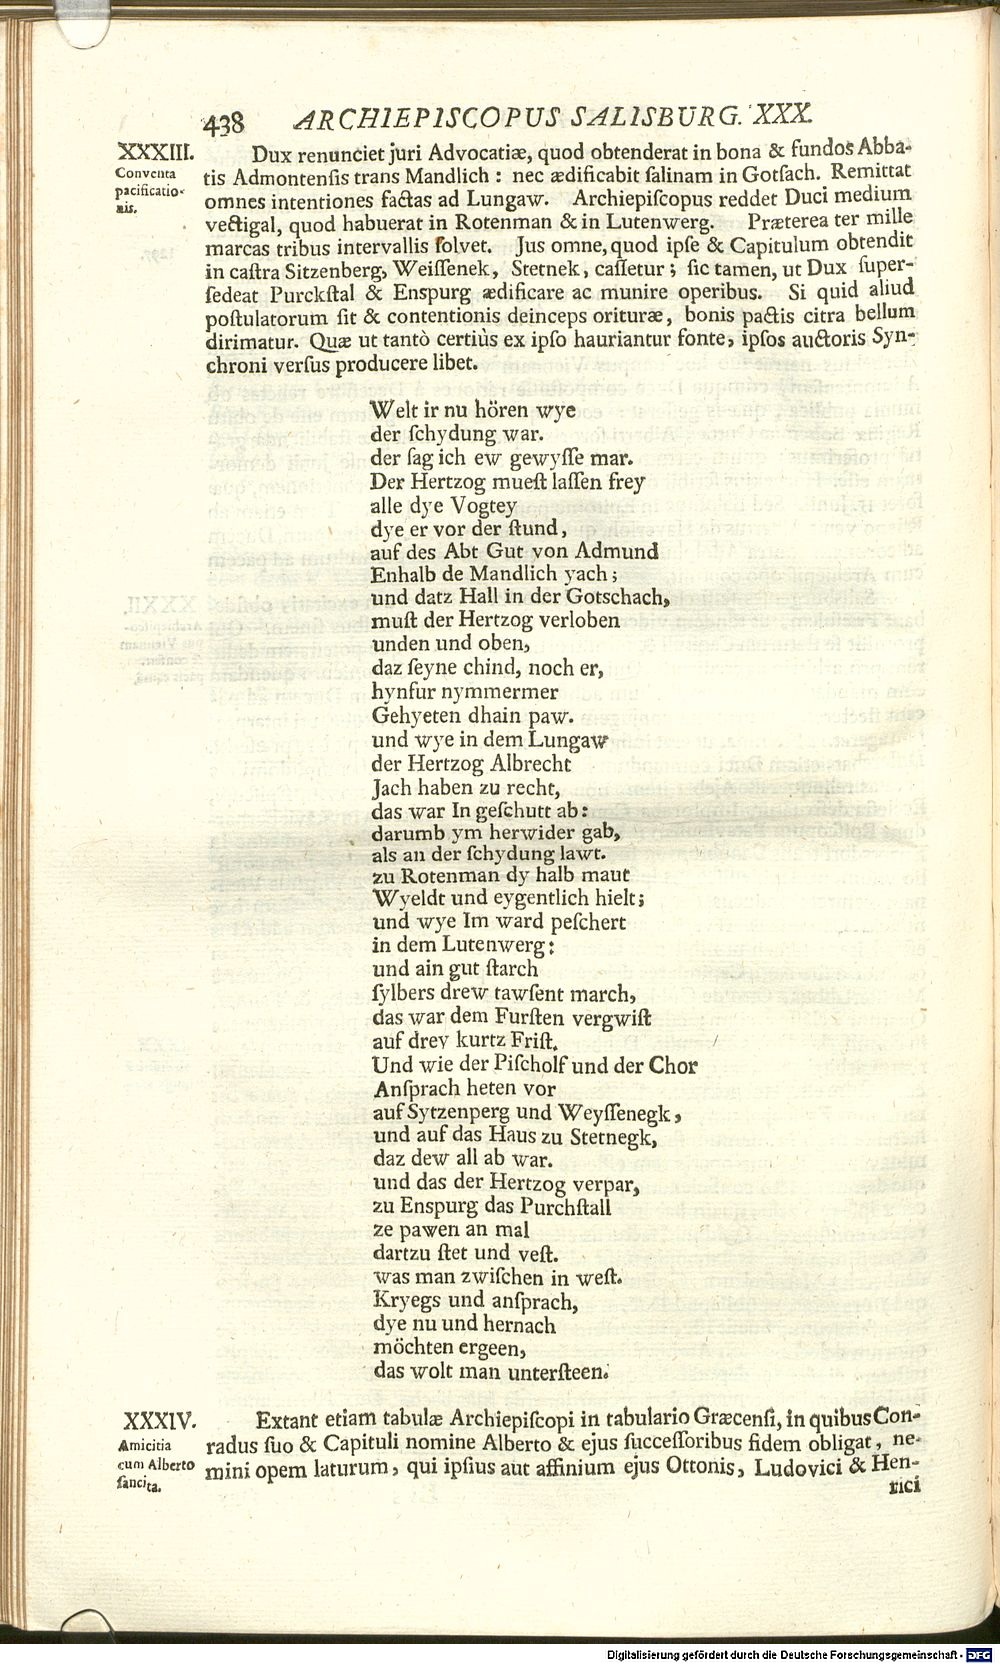 438 ARCHIEPISCOPUS SALISBURG. XXX.
XXXIII.
Conventa
pacificatio-
nis.
Dux renunciet juri Advocatiæ, quod obtenderat in bona & fundos Abba-
tis Admontenſis trans Mandlich : nec ædificabit ſalinam in Gotſach. Remittat
omnes intentiones factas ad Lungaw. Archiepiſcopus reddet Duci medium
vectigal, quod habuerat in Rotenman & in Lutenwerg. Præterea ter mille
marcas tribus intervallis ſolvet. Jus omne, quod ipſe & Capitulum obtendit
in caſtra Sitzenberg, Weiſſenek, Stetnek, caſſetur ; ſic tamen, ut Dux ſuper-
ſedeat Purckſtal & Enspurg ædificare ac munire operibus. Si quid aliud
poſtulatorum ſit & contentionis deinceps orituræ, bonis pactis citra bellum
dirimatur. Quæ ut tantò certiùs ex ipſo hauriantur fonte, ipſos auctoris Syn-
chroni verſus producere libet.
Welt ir nu hören wye
der ſchydung war.
der ſag ich ew gewyſſe mar.
Der Hertzog mueſt laſſen frey
alle dye Vogtey
dye er vor der ſtund,
auf des Abt Gut von Admund
Enhalb de Mandlich yach ;
und datz Hall in der Gotschach,
muſt der Hertzog verloben
unden und oben,
daz ſeyne chind, noch er,
hynfur nymmermer
Gehyeten dhain paw.
und wye in dem Lungaw
der Hertzog Albrecht
Jach haben zu recht,
das war In geſchutt ab :
darumb ym herwider gab,
als an der ſchydung lawt.
zu Rotenman dy halb maut
Wyeldt und eygentlich hielt ;
und wye Im ward peſchert
in dem Lutenwerg :
und ain gut ſtarch
ſylbers drew tawſent march,
das war dem Furſten vergwiſt
auf drey kurtz Friſt.
Und wie der Piſcholf und der Chor
Anſprach heten vor
auf Sytzenperg und Weyſſenegk,
und auf das Haus zu Stetnegk,
daz dew all ab war.
und das der Hertzog verpar,
zu Enspurg das Purchſtall
ze pawen an mal
dartzu ſtet und veſt.
was man zwiſchen in weſt.
Kryegs und anſprach,
dye nu und hernach
möchten ergeen,
das wolt man unterſteen.
XXXIV.
Amicitia
cum Alberto
ſancita.
Extant etiam tabulæ Archiepiſcopi in tabulario Græcenſi, in quibus Con-
radus ſuo & Capituli nomine Alberto & ejus ſucceſſoribus fidem obligat, ne-
mini opem laturum, qui ipſius aut affinium ejus Ottonis, Ludovici & Hen-
rici
Digitalisierung gefördert durch die Deutsche Forschungsgemeinschaft - DFG